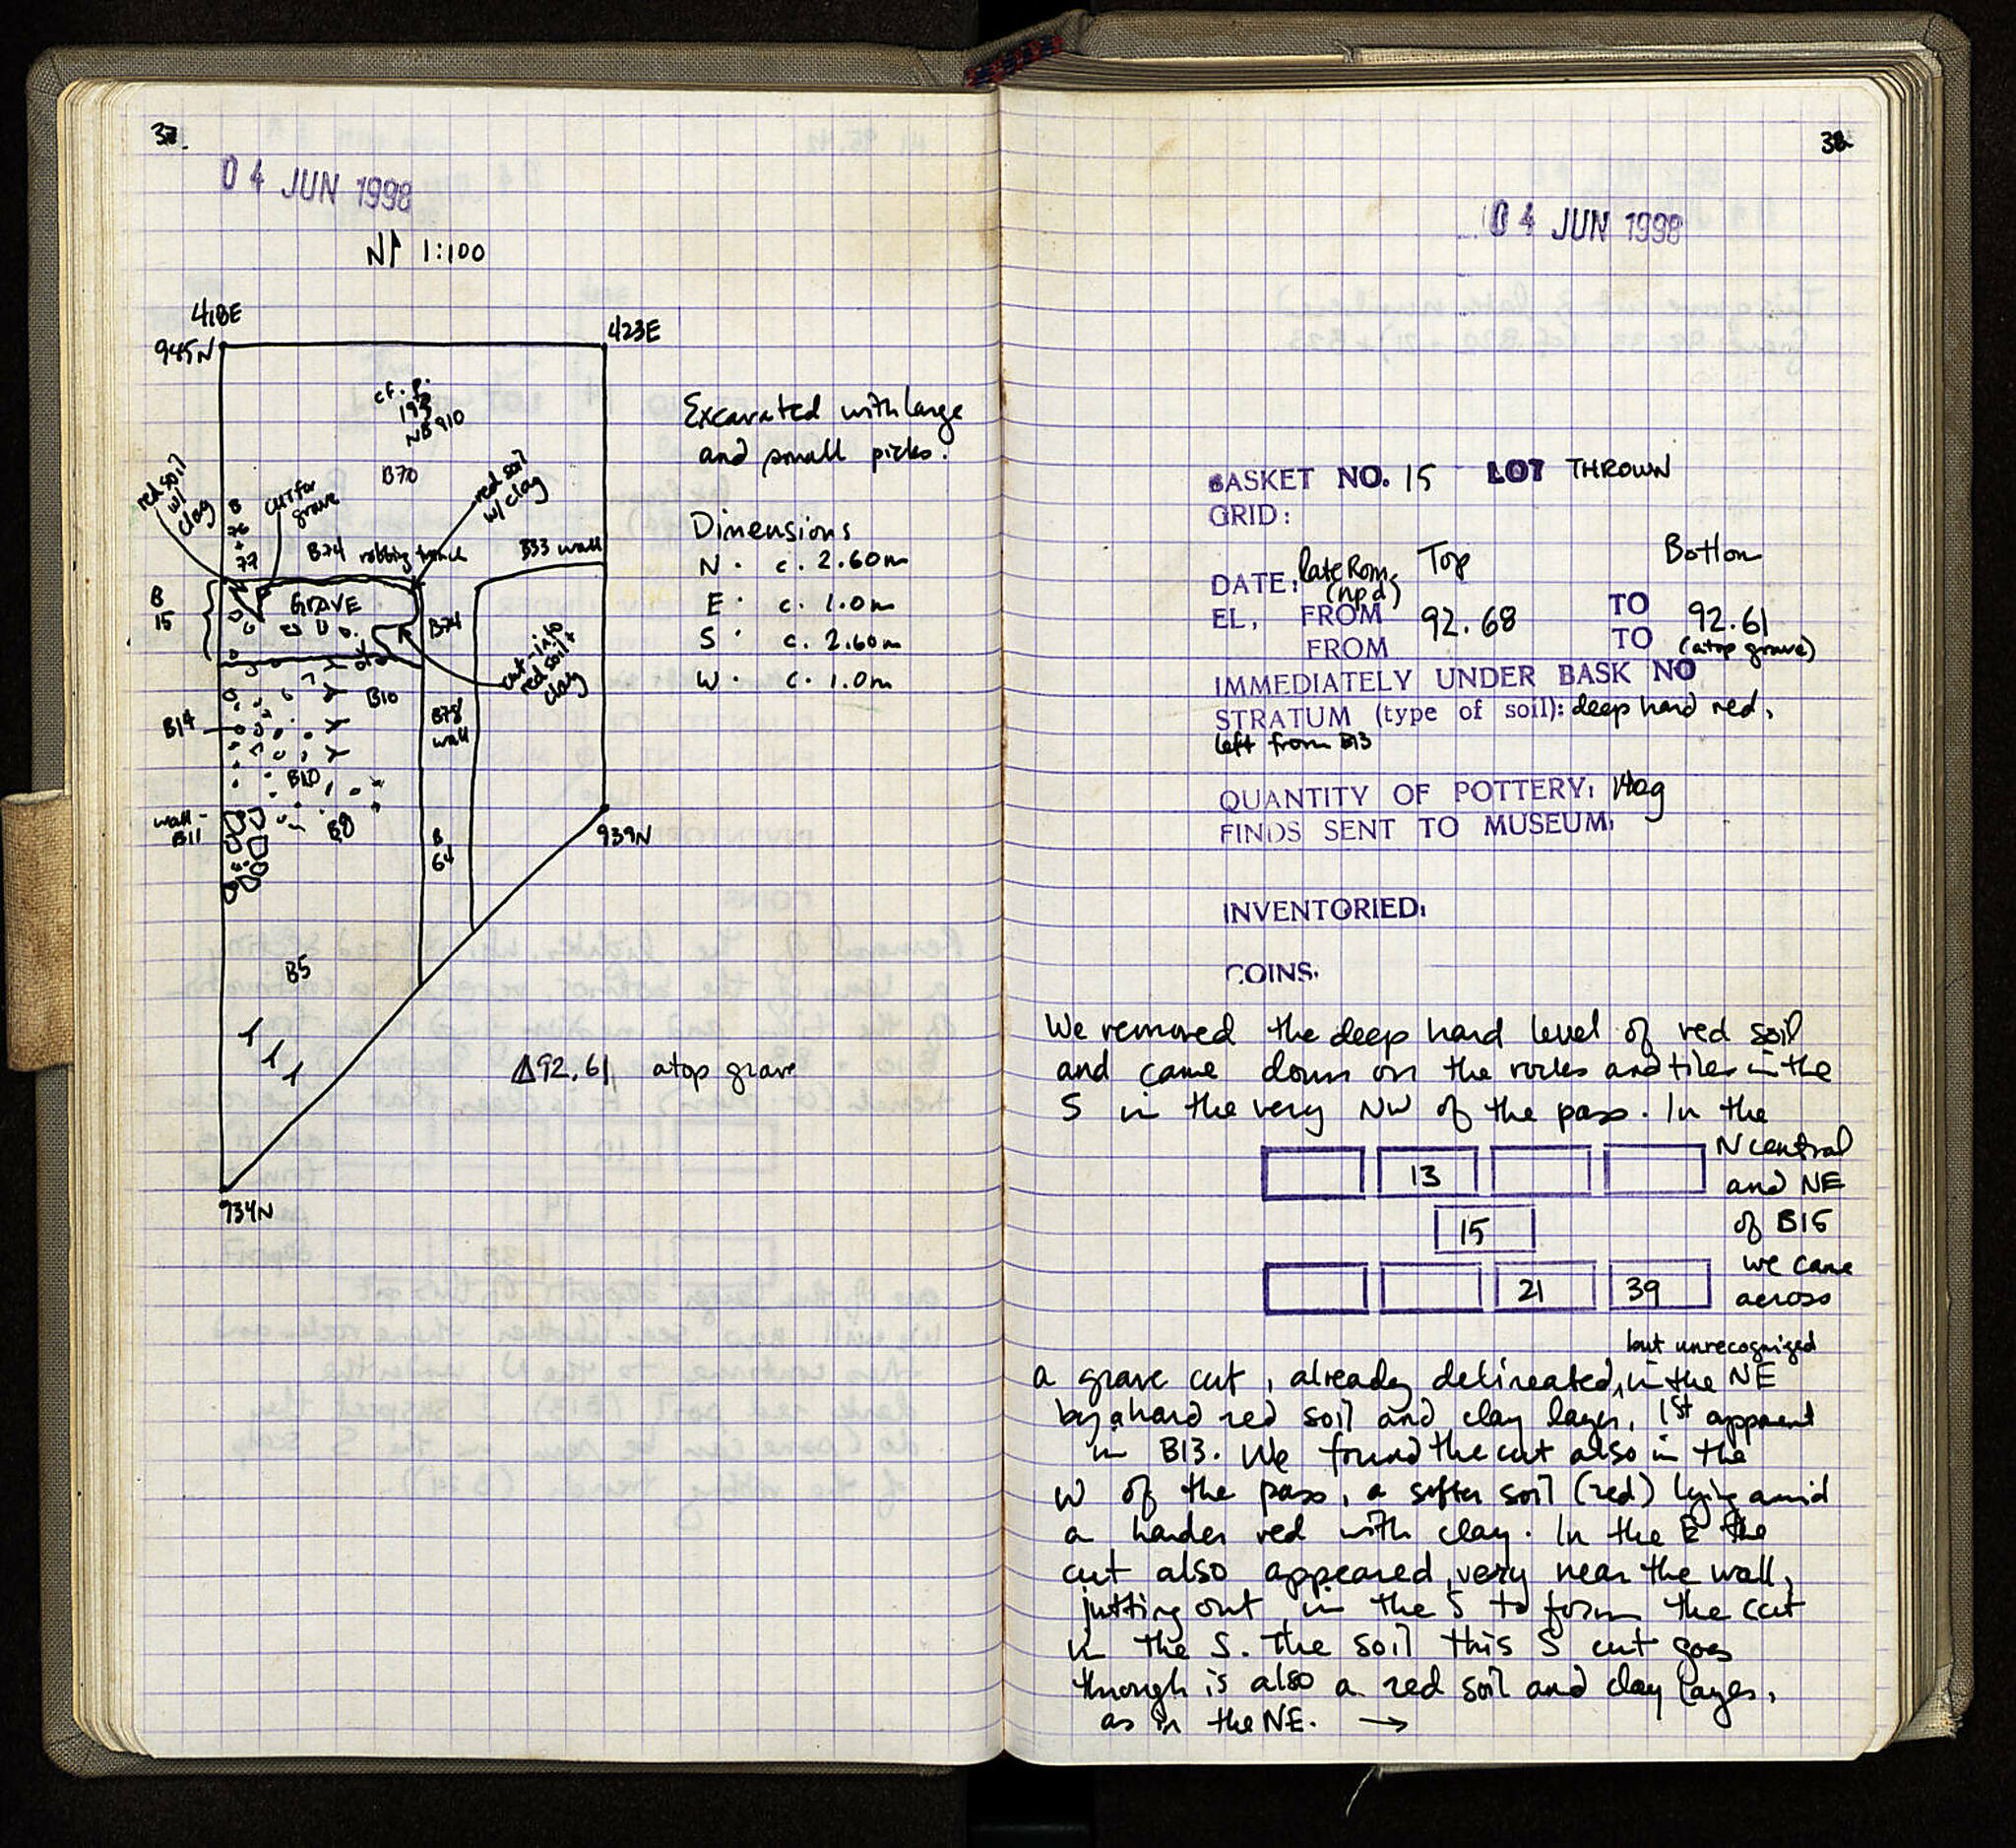 04 JUN 1998
N 1:100
418E
423E
945N
cf. p.
NB 910
B70
red soil
w/
clay
B
76
+
77
cut for
grave
red soil
w/ clay
B74 robbing trench
B33 wall
B
15
GRAVE
B74
cut into
red soil +
clay
B10
B14
B78
wall
B10
wall -
B11
B8
B
64
939N
B5
934N
Excavated with large
and small picks.
Dimensions
N. c. 2.60m
E. c. 1.0m
S. c. 2.60m
W. c. 1.0m
Δ92.61 atop grave
38
04 JUN 1998
BASKET NO. 15 LOT THROWN
GRID:
DATE: late Rom. Top Bottom
(npd)
EL. FROM 92.68 TO 92.61
FROM TO (atop grave)
IMMEDIATELY UNDER BASK NO
STRATUM (type of soil): deep hard red,
left from B13
QUANTITY OF POTTERY: 14ag
FINDS SENT TO MUSEUM:
INVENTORIED:
COINS.
We removed the deep hard level of red soil
and came down on the rocks and tiles in the
S in the very NW of the pass. In the
N central
13
and NE
15
of B15
we came
21 39
across
but unrecognized
a grave cut, already delineated, in the NE
by a hard red soil and clay layer, 1st apparent
in B13. We found the cut also in the
W of the pass, a softer soil (red) lying amid
a harder red with clay. In the E the
cut also appeared very near the wall,
jutting out in the S to form the cut
in the S. The soil this S cut goes
through is also a red soil and clay layer,
as in the NE. →